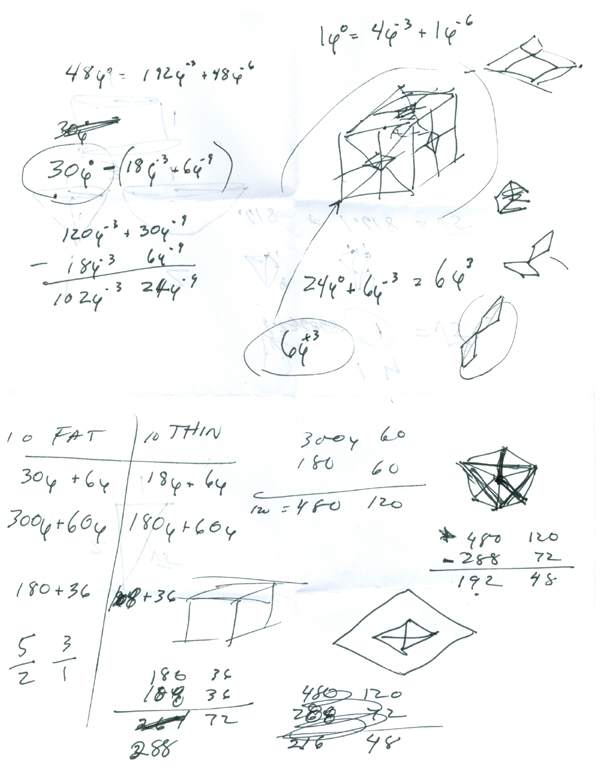 1φ⁰ = 4φ⁻³ + 1φ⁻⁶
48φ⁰ = 192φ⁻³ + 48φ⁻⁶
30φ⁰ - (18φ⁻³ + 6φ⁻⁹)
120φ⁻³ + 30φ⁻⁹
- 18φ⁻³ 6φ⁻⁹
102φ⁻³ 24φ⁻⁹
24φ⁰ + 6φ⁻³ = 6φ³
6φ⁺³
10 FAT | 10 THIN
30φ + 6φ | 18φ + 6φ
300φ + 60φ | 180φ + 60φ
180 + 36 | + 36
5/2 3/1
300φ 60
180 60
120 = 480 120
480 120
- 288 72
192 48
180 36
36
72
288
480 120
72
216 48